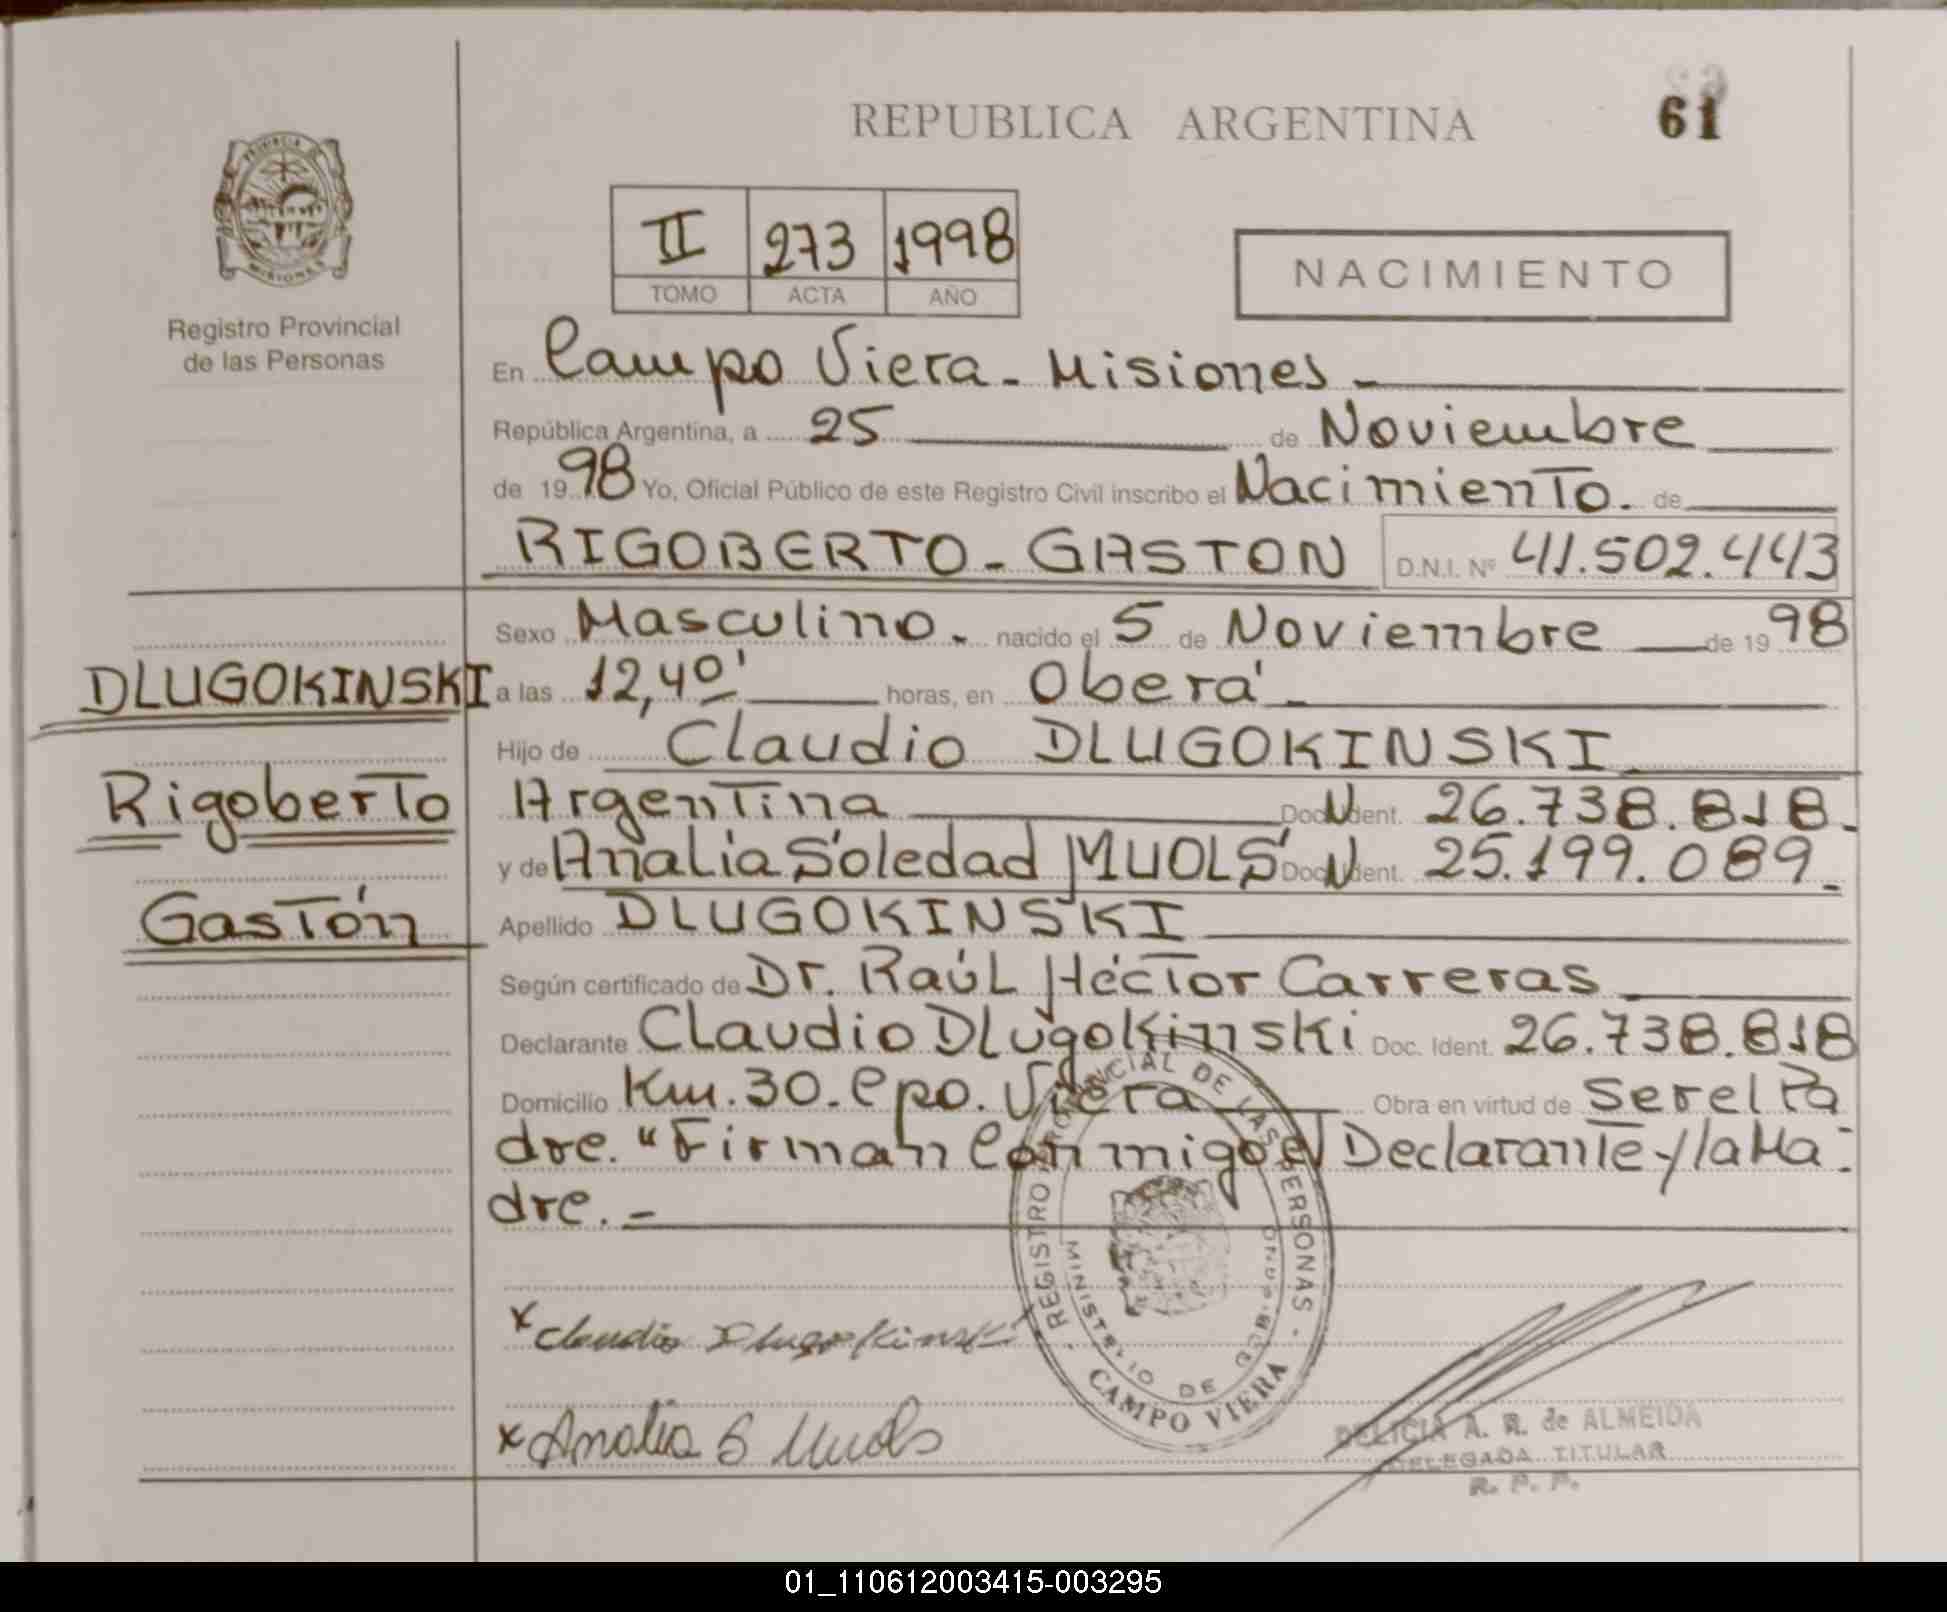 REPUBLICA ARGENTINA
61
PROVINCIA DE
MISIONES
Registro Provincial
de las Personas
II 273 1998
TOMO ACTA AÑO
NACIMIENTO
En Campo Viera - Misiones -
República Argentina, a 25 de Noviembre
de 1998 Yo, Oficial Público de este Registro Civil inscribo el Nacimiento. de
RIGOBERTO - GASTON D.N.I. Nº 41.502.443
Sexo Masculino. nacido el 5 de Noviembre de 1998
DLUGOKINSKI
a las 12,40' horas, en Oberá -
Hijo de Claudio DLUGOKINSKI
Rigoberto
Argentina Doc. Ident. N 26.738.818.
y de Analia Soledad MUOLS Doc. Ident. N 25.199.089.
Gastón
Apellido DLUGOKINSKI
Según certificado de Dr. Raúl Héctor Carreras
Declarante Claudio Dlugokinski Doc. Ident. 26.738.818
Domicilio Km. 30. Cpo. Viera Obra en virtud de Ser el Pa
dre. "Firman Conmigo el Declarante y la Ma-
dre. -
REGISTRO PROVINCIAL DE LAS PERSONAS
MINISTERIO DE GOBIERNO
CAMPO VIERA
x Claudio Dlugokinski
x Analia S Muols
DELICIA A. R. de ALMEIDA
DELEGADA TITULAR
R. P. P.
01_110612003415-003295